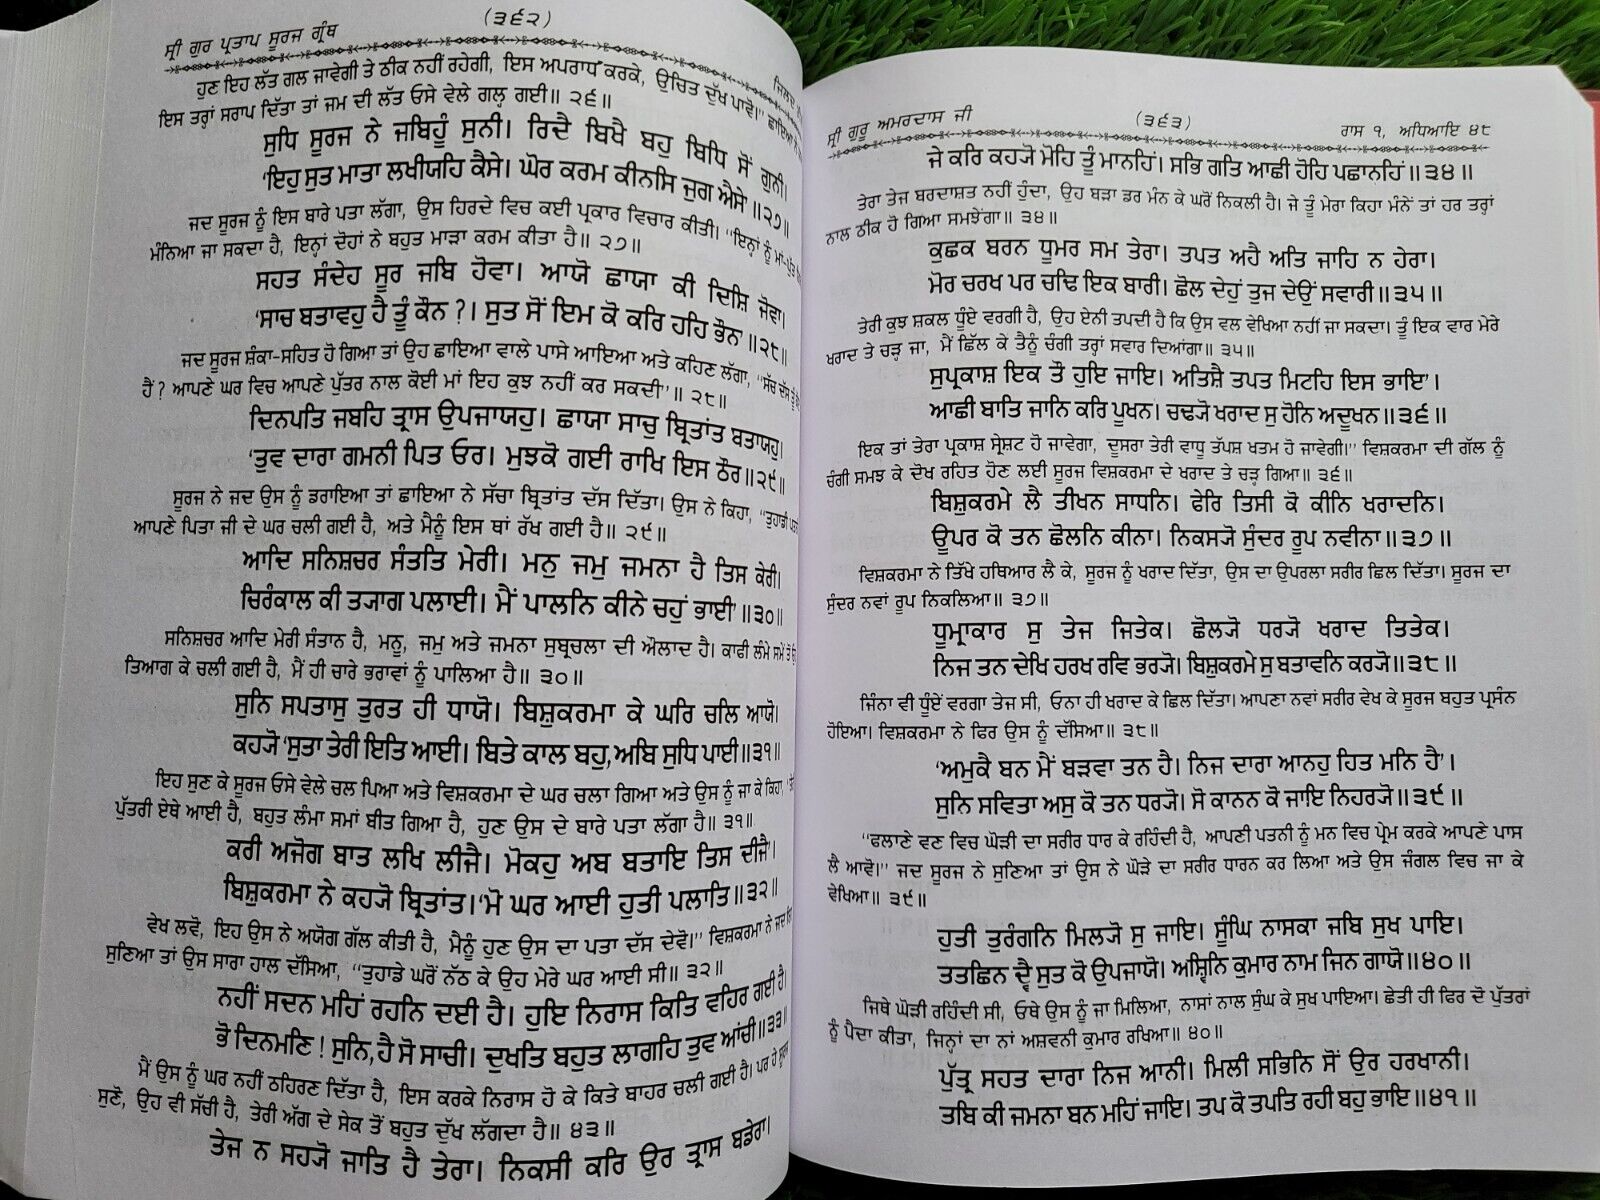 (੩੬੨)
ਸ੍ਰੀ ਗੁਰ ਪ੍ਰਤਾਪ ਸੂਰਜ ਗ੍ਰੰਥ
ਜਿਲਦ
ਹੁਣ ਇਹ ਲੱਤ ਗਲ ਜਾਵੇਗੀ ਤੇ ਠੀਕ ਨਹੀਂ ਰਹੇਗੀ, ਇਸ ਅਪਰਾਧ ਕਰਕੇ, ਉਚਿਤ ਦੁੱਖ ਪਾਵੋ।”
ਇਸ ਤਰ੍ਹਾਂ ਸਰਾਪ ਦਿੱਤਾ ਤਾਂ ਜਮ ਦੀ ਲੱਤ ਓਸੇ ਵੇਲੇ ਗਲ੍ਹ ਗਈ॥ ੨੬॥
ਸੁਧਿ ਸੂਰਜ ਨੇ ਜਬਿਹੂੰ ਸੁਨੀ। ਰਿਦੈ ਬਿਖੈ ਬਹੁ ਬਿਧਿ ਸੋਂ ਗੁਨੀ।
‘ਇਹੁ ਸੁਤ ਮਾਤਾ ਲਖੀਯਹਿ ਕੈਸੇ। ਘੋਰ ਕਰਮ ਕੀਨਸਿ ਜੁਗ ਐਸੇ’॥੨੭॥
ਜਦ ਸੂਰਜ ਨੂੰ ਇਸ ਬਾਰੇ ਪਤਾ ਲੱਗਾ, ਉਸ ਹਿਰਦੇ ਵਿਚ ਕਈ ਪ੍ਰਕਾਰ ਵਿਚਾਰ ਕੀਤੀ। “ਇਨ੍ਹਾਂ ਨੂੰ ਮਾਂ-ਪੁੱਤ
ਮੰਨਿਆ ਜਾ ਸਕਦਾ ਹੈ, ਇਨ੍ਹਾਂ ਦੋਹਾਂ ਨੇ ਬਹੁਤ ਮਾੜਾ ਕਰਮ ਕੀਤਾ ਹੈ॥ ੨੭॥
ਸਹਤ ਸੰਦੇਹ ਸੂਰ ਜਬਿ ਹੋਵਾ। ਆਯੋ ਛਾਯਾ ਕੀ ਦਿਸ਼ਿ ਜੋਵਾ।
‘ਸਾਚ ਬਤਾਵਹੁ ਹੈ ਤੂੰ ਕੌਨ ?। ਸੁਤ ਸੋਂ ਇਮ ਕੋ ਕਰਿ ਹਹਿ ਭੌਨ’॥੨੮॥
ਜਦ ਸੂਰਜ ਸ਼ੰਕਾ-ਸਹਿਤ ਹੋ ਗਿਆ ਤਾਂ ਉਹ ਛਾਇਆ ਵਾਲੇ ਪਾਸੇ ਆਇਆ ਅਤੇ ਕਹਿਣ ਲੱਗਾ, “ਸੱਚ ਦੱਸ ਤੂੰ
ਹੈਂ ? ਆਪਣੇ ਘਰ ਵਿਚ ਆਪਣੇ ਪੁੱਤਰ ਨਾਲ ਕੋਈ ਮਾਂ ਇਹ ਕੁਝ ਨਹੀਂ ਕਰ ਸਕਦੀ”॥ ੨੮॥
ਦਿਨਪਤਿ ਜਬਹਿ ਤ੍ਰਾਸ ਉਪਜਾਯਹੁ। ਛਾਯਾ ਸਾਚੁ ਬ੍ਰਿਤਾਂਤ ਬਤਾਯਹੁ।
‘ਤੁਵ ਦਾਰਾ ਗਮਨੀ ਪਿਤ ਓਰ। ਮੁਝਕੋ ਗਈ ਰਾਖਿ ਇਸ ਠੌਰ॥੨੯॥
ਸੂਰਜ ਨੇ ਜਦ ਉਸ ਨੂੰ ਡਰਾਇਆ ਤਾਂ ਛਾਇਆ ਨੇ ਸੱਚਾ ਬ੍ਰਿਤਾਂਤ ਦੱਸ ਦਿੱਤਾ। ਉਸ ਨੇ ਕਿਹਾ, “ਤੁਹਾਡੀ
ਆਪਣੇ ਪਿਤਾ ਜੀ ਦੇ ਘਰ ਚਲੀ ਗਈ ਹੈ, ਅਤੇ ਮੈਨੂੰ ਇਸ ਥਾਂ ਰੱਖ ਗਈ ਹੈ॥ ੨੯॥
ਆਦਿ ਸਨਿਸ਼ਚਰ ਸੰਤਤਿ ਮੇਰੀ। ਮਨੁ ਜਮੁ ਜਮਨਾ ਹੈ ਤਿਸ ਕੇਰੀ।
ਚਿਰੰਕਾਲ ਕੀ ਤ੍ਯਾਗ ਪਲਾਈ। ਮੈਂ ਪਾਲਨਿ ਕੀਨੇ ਚਹੁਂ ਭਾਈ’॥੩੦॥
ਸਨਿਸ਼ਚਰ ਆਦਿ ਮੇਰੀ ਸੰਤਾਨ ਹੈ, ਮਨੂ, ਜਮੁ ਅਤੇ ਜਮਨਾ ਸੁਬ੍ਰਚਲਾ ਦੀ ਔਲਾਦ ਹੈ। ਕਾਫੀ ਲੰਮੇ ਸਮੇਂ ਤੋਂ
ਤਿਆਗ ਕੇ ਚਲੀ ਗਈ ਹੈ, ਮੈਂ ਹੀ ਚਾਰੇ ਭਰਾਵਾਂ ਨੂੰ ਪਾਲਿਆ ਹੈ॥ ੩੦॥
ਸੁਨਿ ਸਪਤਾਸੁ ਤੁਰਤ ਹੀ ਧਾਯੋ। ਬਿਸ਼ੁਕਰਮਾ ਕੇ ਘਰਿ ਚਲਿ ਆਯੋ।
ਕਹ੍ਯੋ ‘ਸੁਤਾ ਤੇਰੀ ਇਤਿ ਆਈ। ਬਿਤੇ ਕਾਲ ਬਹੁ, ਅਬਿ ਸੁਧਿ ਪਾਈ॥੩੧॥
ਇਹ ਸੁਣ ਕੇ ਸੂਰਜ ਓਸੇ ਵੇਲੇ ਚਲ ਪਿਆ ਅਤੇ ਵਿਸ਼ਕਰਮਾ ਦੇ ਘਰ ਚਲਾ ਗਿਆ ਅਤੇ ਉਸ ਨੂੰ ਜਾ ਕੇ ਕਿਹਾ,
ਪੁੱਤਰੀ ਏਥੇ ਆਈ ਹੈ, ਬਹੁਤ ਲੰਮਾ ਸਮਾਂ ਬੀਤ ਗਿਆ ਹੈ, ਹੁਣ ਉਸ ਦੇ ਬਾਰੇ ਪਤਾ ਲੱਗਾ ਹੈ॥ ੩੧॥
ਕਰੀ ਅਜੋਗ ਬਾਤ ਲਖਿ ਲੀਜੈ। ਮੋਕਹੁ ਅਬ ਬਤਾਇ ਤਿਸ ਦੀਜੈ’।
ਬਿਸ਼ੁਕਰਮਾ ਨੇ ਕਹ੍ਯੋ ਬ੍ਰਿਤਾਂਤ। ‘ਮੋ ਘਰ ਆਈ ਹੁਤੀ ਪਲਾਤਿ॥੩੨॥
ਵੇਖ ਲਵੋ, ਇਹ ਉਸ ਨੇ ਅਯੋਗ ਗੱਲ ਕੀਤੀ ਹੈ, ਮੈਨੂੰ ਹੁਣ ਉਸ ਦਾ ਪਤਾ ਦੱਸ ਦੇਵੋ।” ਵਿਸ਼ਕਰਮਾ ਨੇ ਜਦ
ਸੁਣਿਆ ਤਾਂ ਉਸ ਸਾਰਾ ਹਾਲ ਦੱਸਿਆ, “ਤੁਹਾਡੇ ਘਰੋਂ ਨੱਠ ਕੇ ਉਹ ਮੇਰੇ ਘਰ ਆਈ ਸੀ॥ ੩੨॥
ਨਹੀਂ ਸਦਨ ਮਹਿਂ ਰਹਨਿ ਦਈ ਹੈ। ਹੁਇ ਨਿਰਾਸ ਕਿਤਿ ਵਹਿਰ ਗਈ ਹੈ।
ਭੋ ਦਿਨਮਣਿ ! ਸੁਨਿ, ਹੈ ਸੋ ਸਾਚੀ। ਦੁਖਤਿ ਬਹੁਤ ਲਾਗਹਿ ਤੁਵ ਆਂਚੀ॥੩੩॥
ਮੈਂ ਉਸ ਨੂੰ ਘਰ ਨਹੀਂ ਠਹਿਰਣ ਦਿੱਤਾ ਹੈ, ਇਸ ਕਰਕੇ ਨਿਰਾਸ ਹੋ ਕੇ ਕਿਤੇ ਬਾਹਰ ਚਲੀ ਗਈ ਹੈ। ਪਰ ਹੇ ਸੂਰਜ
ਸੁਣੋ, ਉਹ ਵੀ ਸੱਚੀ ਹੈ, ਤੇਰੀ ਅੱਗ ਦੇ ਸੇਕ ਤੋਂ ਬਹੁਤ ਦੁੱਖ ਲੱਗਦਾ ਹੈ॥ ੪੩॥
ਤੇਜ ਨ ਸਹ੍ਯੋ ਜਾਤਿ ਹੈ ਤੇਰਾ। ਨਿਕਸੀ ਕਰਿ ਉਰ ਤ੍ਰਾਸ ਬਡੇਰਾ।
ਸ੍ਰੀ ਗੁਰੂ ਅਮਰਦਾਸ ਜੀ
(੩੬੩)
ਰਾਸ ੧, ਅਧਿਆਇ ੪੮
ਜੇ ਕਰਿ ਕਹ੍ਯੋ ਮੋਹਿ ਤੂੰ ਮਾਨਹਿਂ। ਸਭਿ ਗਤਿ ਆਛੀ ਹੋਹਿ ਪਛਾਨਹਿਂ॥੩੪॥
ਤੇਰਾ ਤੇਜ ਬਰਦਾਸ਼ਤ ਨਹੀਂ ਹੁੰਦਾ, ਉਹ ਬੜਾ ਡਰ ਮੰਨ ਕੇ ਘਰੋਂ ਨਿਕਲੀ ਹੈ। ਜੇ ਤੂੰ ਮੇਰਾ ਕਿਹਾ ਮੰਨੇਂ ਤਾਂ ਹਰ ਤਰ੍ਹਾਂ
ਨਾਲ ਠੀਕ ਹੋ ਗਿਆ ਸਮਝੇਂਗਾ॥ ੩੪॥
ਕੁਛਕ ਬਰਨ ਧੂਮਰ ਸਮ ਤੇਰਾ। ਤਪਤ ਅਹੈ ਅਤਿ ਜਾਹਿ ਨ ਹੇਰਾ।
ਮੋਰ ਚਰਖ ਪਰ ਚਢਿ ਇਕ ਬਾਰੀ। ਛੋਲ ਦੇਹੁਂ ਤੁਜ ਦੇਉਂ ਸਵਾਰੀ॥੩੫॥
ਤੇਰੀ ਕੁਝ ਸ਼ਕਲ ਧੂੰਏ ਵਰਗੀ ਹੈ, ਉਹ ਏਨੀ ਤਪਦੀ ਹੈ ਕਿ ਉਸ ਵਲ ਵੇਖਿਆ ਨਹੀਂ ਜਾ ਸਕਦਾ। ਤੂੰ ਇਕ ਵਾਰ ਮੇਰੇ
ਖਰਾਦ ਤੇ ਚੜ੍ਹ ਜਾ, ਮੈਂ ਛਿੱਲ ਕੇ ਤੈਨੂੰ ਚੰਗੀ ਤਰ੍ਹਾਂ ਸਵਾਰ ਦਿਆਂਗਾ॥ ੩੫॥
ਸੁਪ੍ਰਕਾਸ਼ ਇਕ ਤੌ ਹੁਇ ਜਾਇ। ਅਤਿਸ਼ੈ ਤਪਤ ਮਿਟਹਿ ਇਸ ਭਾਇ’।
ਆਛੀ ਬਾਤਿ ਜਾਨਿ ਕਰਿ ਪੂਖਨ। ਚਢ੍ਯੋ ਖਰਾਦ ਸੁ ਹੋਨਿ ਅਦੂਖਨ॥੩੬॥
ਇਕ ਤਾਂ ਤੇਰਾ ਪ੍ਰਕਾਸ਼ ਸ੍ਰੇਸ਼ਟ ਹੋ ਜਾਵੇਗਾ, ਦੂਸਰਾ ਤੇਰੀ ਵਾਧੂ ਤੱਪਸ਼ ਖਤਮ ਹੋ ਜਾਵੇਗੀ।” ਵਿਸ਼ਕਰਮਾ ਦੀ ਗੱਲ ਨੂੰ
ਚੰਗੀ ਸਮਝ ਕੇ ਦੋਖ ਰਹਿਤ ਹੋਣ ਲਈ ਸੂਰਜ ਵਿਸ਼ਕਰਮਾ ਦੇ ਖਰਾਦ ਤੇ ਚੜ੍ਹ ਗਿਆ॥ ੩੬॥
ਬਿਸ਼ੁਕਰਮੇ ਲੈ ਤੀਖਨ ਸਾਧਨਿ। ਫੇਰਿ ਤਿਸੀ ਕੋ ਕੀਨਿ ਖਰਾਦਨਿ।
ਊਪਰ ਕੋ ਤਨ ਛੋਲਨਿ ਕੀਨਾ। ਨਿਕਸ੍ਯੋ ਸੁੰਦਰ ਰੂਪ ਨਵੀਨਾ॥੩੭॥
ਵਿਸ਼ਕਰਮਾ ਨੇ ਤਿੱਖੇ ਹਥਿਆਰ ਲੈ ਕੇ, ਸੂਰਜ ਨੂੰ ਖਰਾਦ ਦਿੱਤਾ, ਉਸ ਦਾ ਉਪਰਲਾ ਸਰੀਰ ਛਿਲ ਦਿੱਤਾ। ਸੂਰਜ ਦਾ
ਸੁੰਦਰ ਨਵਾਂ ਰੂਪ ਨਿਕਲਿਆ॥ ੩੭॥
ਧੂਮ੍ਰਾਕਾਰ ਸੁ ਤੇਜ ਜਿਤੇਕ। ਛੋਲ੍ਯੋ ਧਰ੍ਯੋ ਖਰਾਦ ਤਿਤੇਕ।
ਨਿਜ ਤਨ ਦੇਖਿ ਹਰਖ ਰਵਿ ਭਰ੍ਯੋ। ਬਿਸ਼ੁਕਰਮੇ ਸੁ ਬਤਾਵਨਿ ਕਰ੍ਯੋ॥੩੮॥
ਜਿੰਨਾ ਵੀ ਧੂੰਏਂ ਵਰਗਾ ਤੇਜ ਸੀ, ਓਨਾ ਹੀ ਖਰਾਦ ਕੇ ਛਿਲ ਦਿੱਤਾ। ਆਪਣਾ ਨਵਾਂ ਸਰੀਰ ਵੇਖ ਕੇ ਸੂਰਜ ਬਹੁਤ ਪ੍ਰਸੰਨ
ਹੋਇਆ। ਵਿਸ਼ਕਰਮਾ ਨੇ ਫਿਰ ਉਸ ਨੂੰ ਦੱਸਿਆ॥ ੩੮॥
‘ਅਮੁਕੈ ਬਨ ਮੈਂ ਬੜਵਾ ਤਨ ਹੈ। ਨਿਜ ਦਾਰਾ ਆਨਹੁ ਹਿਤ ਮਨਿ ਹੈ’।
ਸੁਨਿ ਸਵਿਤਾ ਅਸੁ ਕੋ ਤਨ ਧਰ੍ਯੋ। ਸੋ ਕਾਨਨ ਕੋ ਜਾਇ ਨਿਹਰ੍ਯੋ॥੩੯॥
“ਫਲਾਣੇ ਵਣ ਵਿਚ ਘੋੜੀ ਦਾ ਸਰੀਰ ਧਾਰ ਕੇ ਰਹਿੰਦੀ ਹੈ, ਆਪਣੀ ਪਤਨੀ ਨੂੰ ਮਨ ਵਿਚ ਪ੍ਰੇਮ ਕਰਕੇ ਆਪਣੇ ਪਾਸ
ਲੈ ਆਵੋ।” ਜਦ ਸੂਰਜ ਨੇ ਸੁਣਿਆ ਤਾਂ ਉਸ ਨੇ ਘੋੜੇ ਦਾ ਸਰੀਰ ਧਾਰਨ ਕਰ ਲਿਆ ਅਤੇ ਉਸ ਜੰਗਲ ਵਿਚ ਜਾ ਕੇ
ਵੇਖਿਆ॥ ੩੯॥
ਹੁਤੀ ਤੁਰੰਗਨਿ ਮਿਲ੍ਯੋ ਸੁ ਜਾਇ। ਸੂੰਘਿ ਨਾਸਕਾ ਜਬਿ ਸੁਖ ਪਾਇ।
ਤਤਛਿਨ ਦ੍ਵੈ ਸੁਤ ਕੋ ਉਪਜਾਯੋ। ਅਸ੍ਵਿਨਿ ਕੁਮਾਰ ਨਾਮ ਜਿਨ ਗਾਯੋ॥੪੦॥
ਜਿਥੇ ਘੋੜੀ ਰਹਿੰਦੀ ਸੀ, ਓਥੇ ਉਸ ਨੂੰ ਜਾ ਮਿਲਿਆ, ਨਾਸਾਂ ਨਾਲ ਸੁੰਘ ਕੇ ਸੁਖ ਪਾਇਆ। ਛੇਤੀ ਹੀ ਫਿਰ ਦੋ ਪੁੱਤਰਾਂ
ਨੂੰ ਪੈਦਾ ਕੀਤਾ, ਜਿਨ੍ਹਾਂ ਦਾ ਨਾਂ ਅਸ਼ਵਨੀ ਕੁਮਾਰ ਰਖਿਆ॥ ੪੦॥
ਪੁੱਤ੍ਰ ਸਹਤ ਦਾਰਾ ਨਿਜ ਆਨੀ। ਮਿਲੀ ਸਭਿਨਿ ਸੋਂ ਉਰ ਹਰਖਾਨੀ।
ਤਬਿ ਕੀ ਜਮਨਾ ਬਨ ਮਹਿਂ ਜਾਇ। ਤਪ ਕੋ ਤਪਤਿ ਰਹੀ ਬਹੁ ਭਾਇ॥੪੧॥